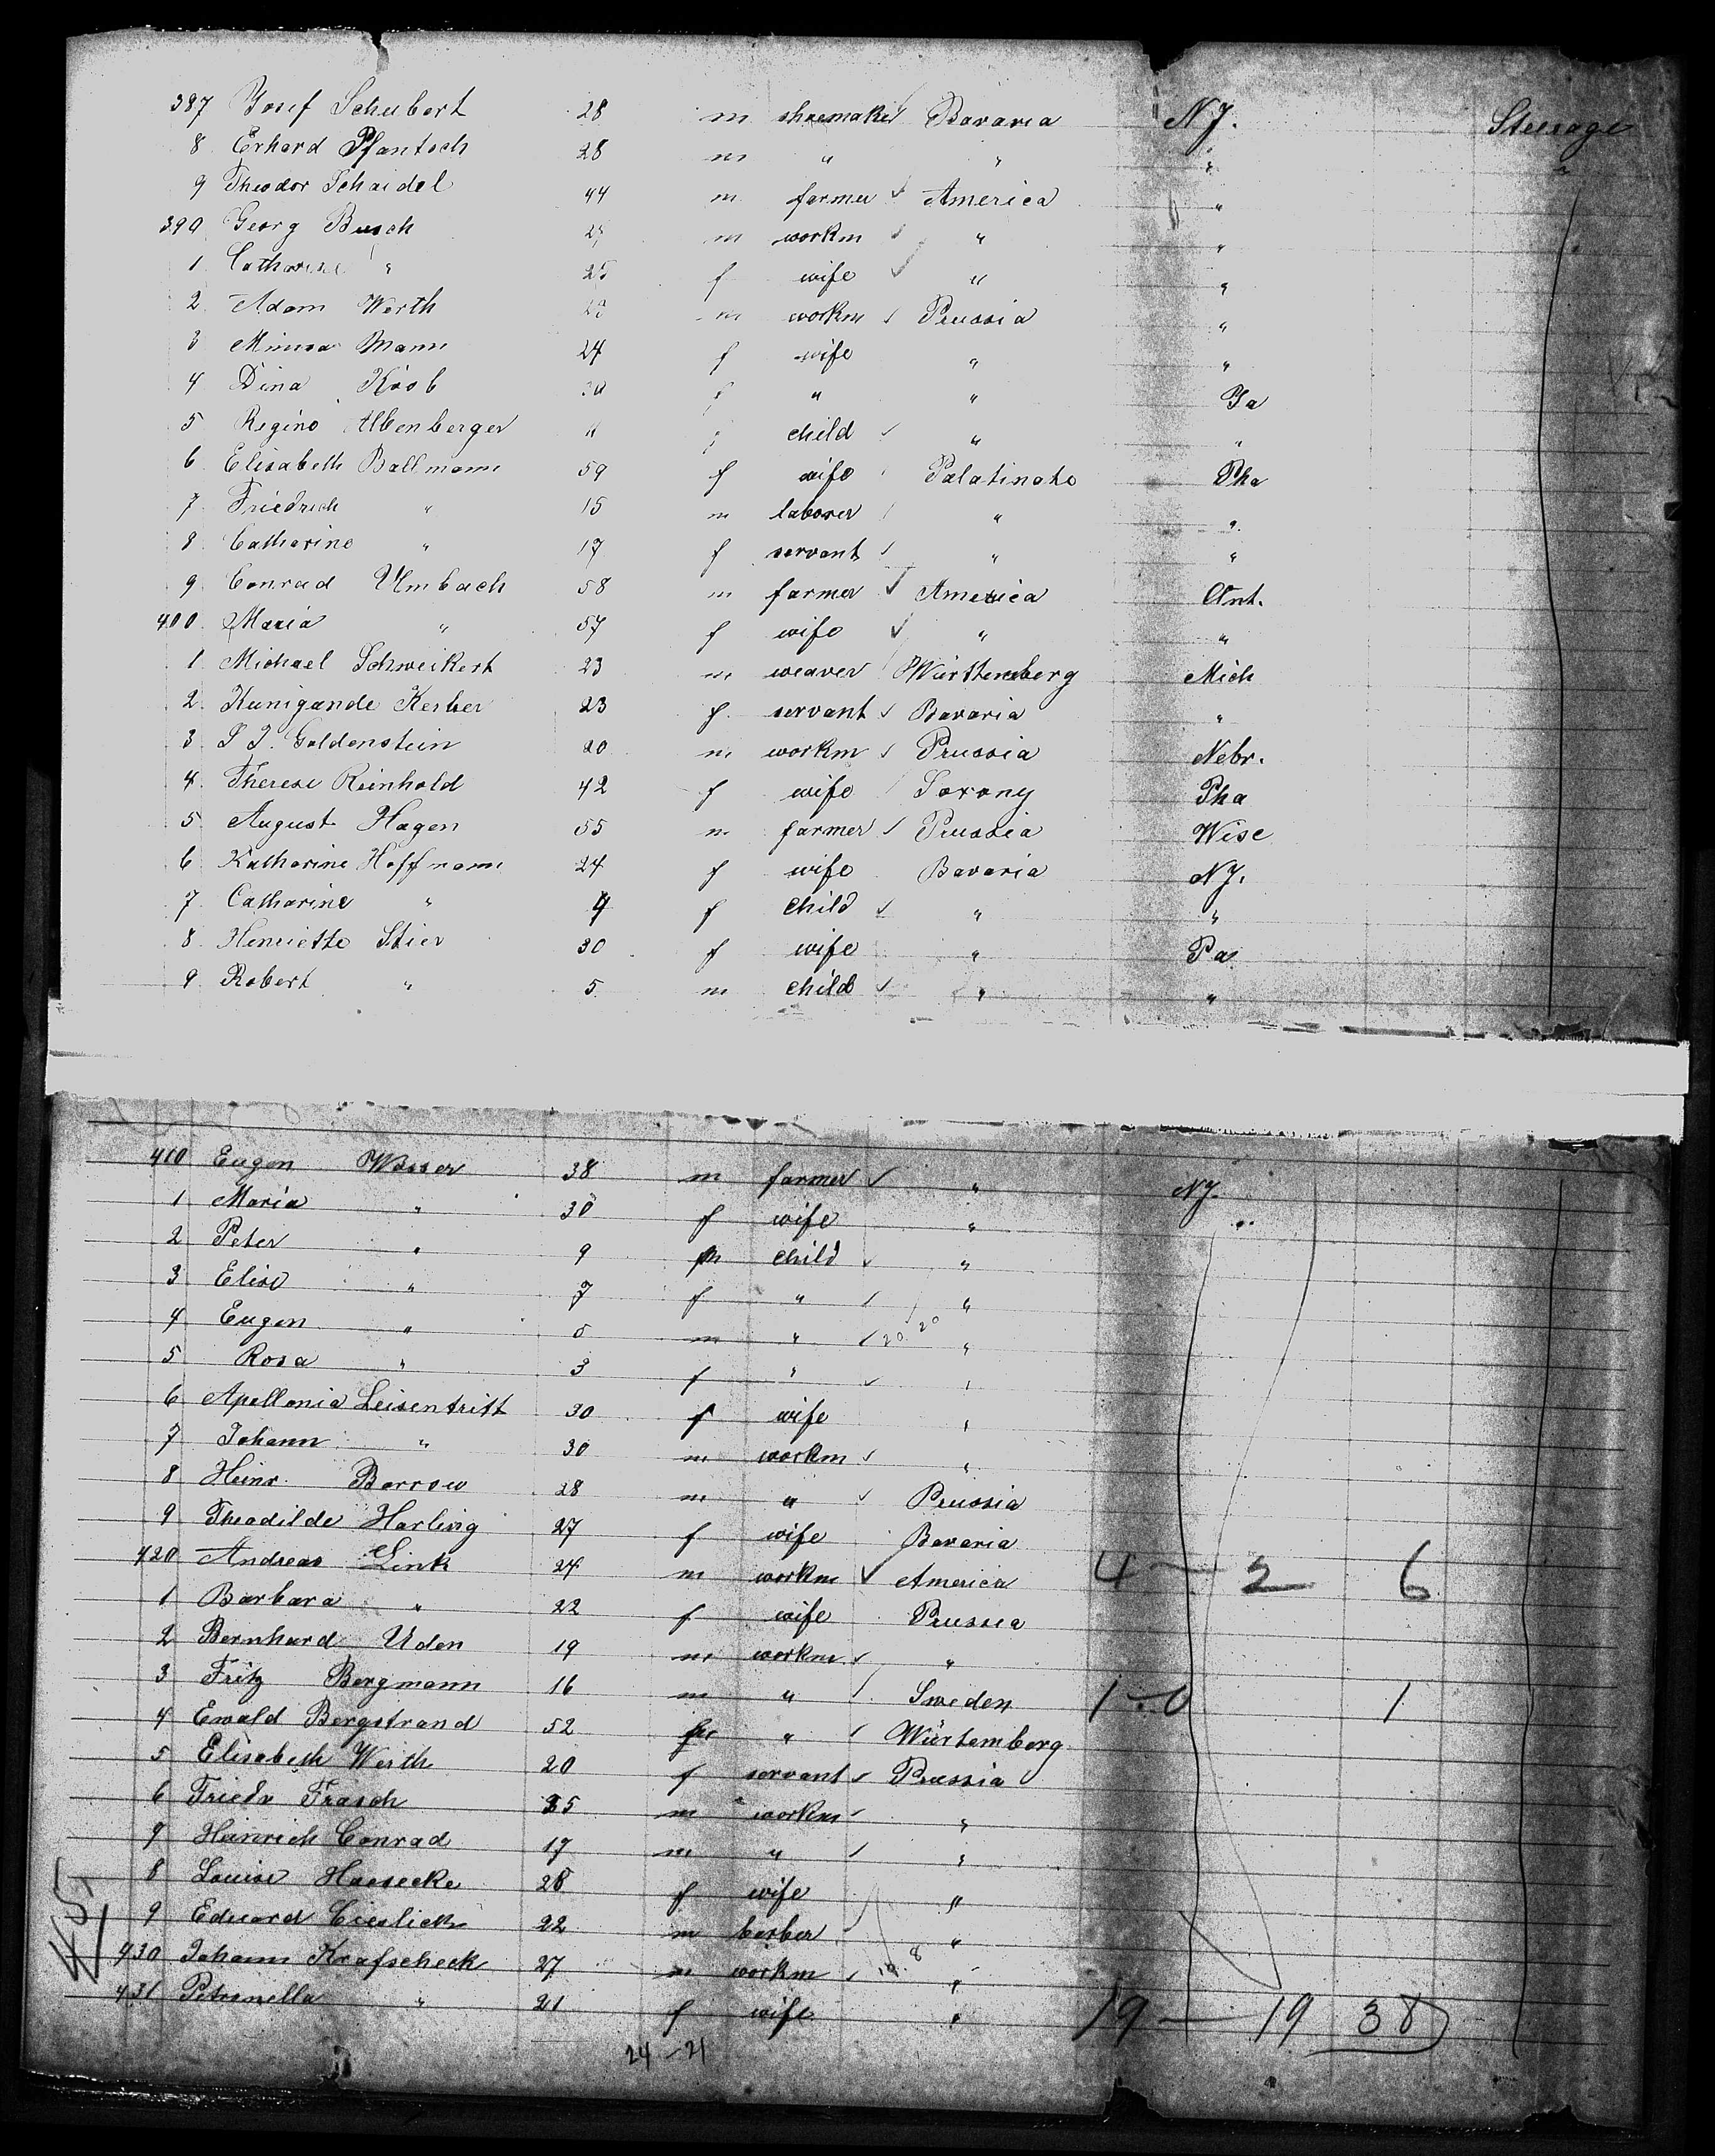 387 Josef Schubert 28 m shoemaker Bavaria N.J. Steerage
8 Erhard Pfantsch 28 m " " " "
9 Theodor Schaidel 44 m farmer America "
390 Georg Busch m workm " "
1 Catharine " 25 f wife " "
2 Adam Werth m workm Prussia "
3 Mann 24 f wife " "
4 Dina f " " Ja
5 Regina Albenberger 11 f child " "
6 Elisabeth Ballmann 59 f wife Palatinate Pha
7 Friedrich " 15 m laborer " "
8 Catharine " 17 f servant " "
9 Conrad Umbach 58 m farmer America Ont.
400 Maria " 57 f wife " "
1 Michael Schweikert 23 m weaver Württemberg Mich
2 Kunigande Kerber 23 f servant Bavaria "
3 Goldenstein 20 m workm Prussia Nebr.
4 Therese Reinhold 42 f wife Saxony Pha
5 August Hagen 55 m farmer Prussia Wisc
6 Katharine Hoffmann 24 f wife Bavaria N.J.
7 Catharine " 4 f child " "
8 Henriette Stier 30 f wife " Pa
9 Robert " 5 m child " "
410 Eugen Wisser 38 m farmer " N.J.
1 Maria " 30 f wife " "
2 Peter " 9 m child "
3 Elise " 7 f " "
4 Eugen " 5 m " 20 20 "
5 Rosa " 3 f " "
6 Apellonia Leisentritt 30 f wife "
7 Johann " 30 m workm "
8 Heinr. Borrow 28 m " Prussia
9 Theodilde Harling 27 f wife Bavaria
420 Andreas Link 24 m workm America 4 — 2 6
1 Barbara " 22 f wife Prussia
2 Bernhard Uden 19 m workm "
3 Fritz Bergmann 16 m " Sweden 1 - 0 1
4 Ewald Bergstrand 52 m " Würtemberg
5 Elisabeth Werth 20 f servant Prussia
6 Friedr Frasch 35 m workm "
7 Heinrich Conrad 17 m " "
8 Louise Haesecke 28 f wife "
9 Eduard Cieslick 22 m barber "
430 Johann Krafscheck 27 m workm 19 8 "
431 Petronella " 21 f wife " 19 — 19 38
24 - 21